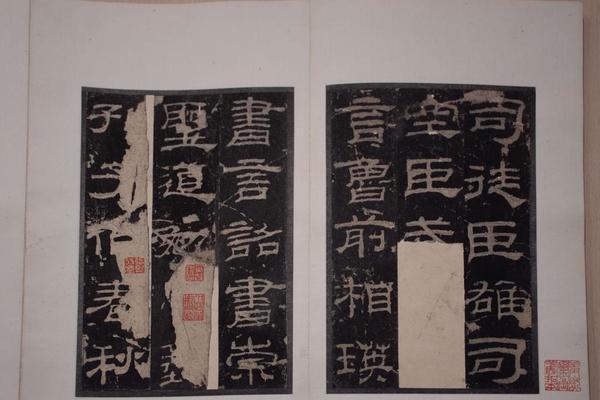 司徒臣雄司
空臣戒
言魯前相瑛
書言詔書崇
聖道勉藝
孔子作春秋